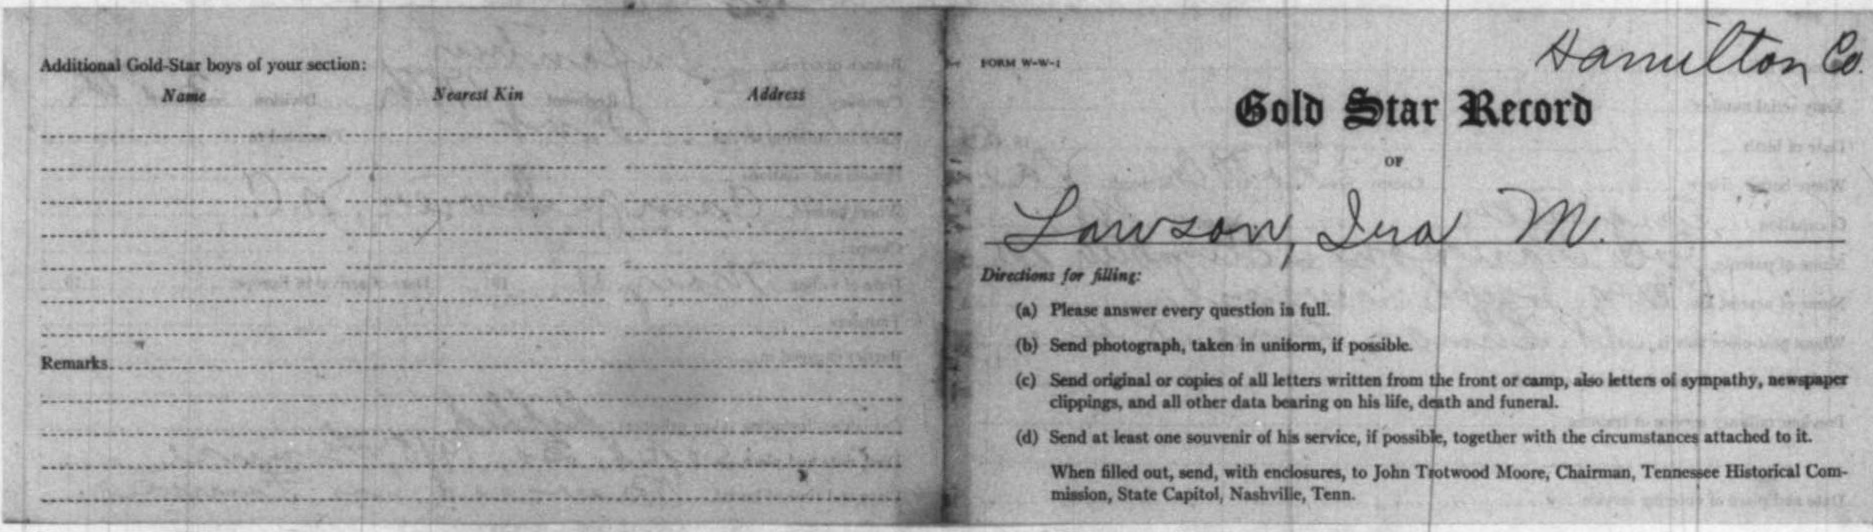 Additional Gold-Star boys of your section:
Name Nearest Kin Address
Remarks
FORM W-W-1
Hamilton Co.
Gold Star Record
OF
Lawson, Ira M.
Directions for filling:
(a) Please answer every question in full.
(b) Send photograph, taken in uniform, if possible.
(c) Send original or copies of all letters written from the front or camp, also letters of sympathy, newspaper
clippings, and all other data bearing on his life, death and funeral.
(d) Send at least one souvenir of his service, if possible, together with the circumstances attached to it.
When filled out, send, with enclosures, to John Trotwood Moore, Chairman, Tennessee Historical Com-
mission, State Capitol, Nashville, Tenn.